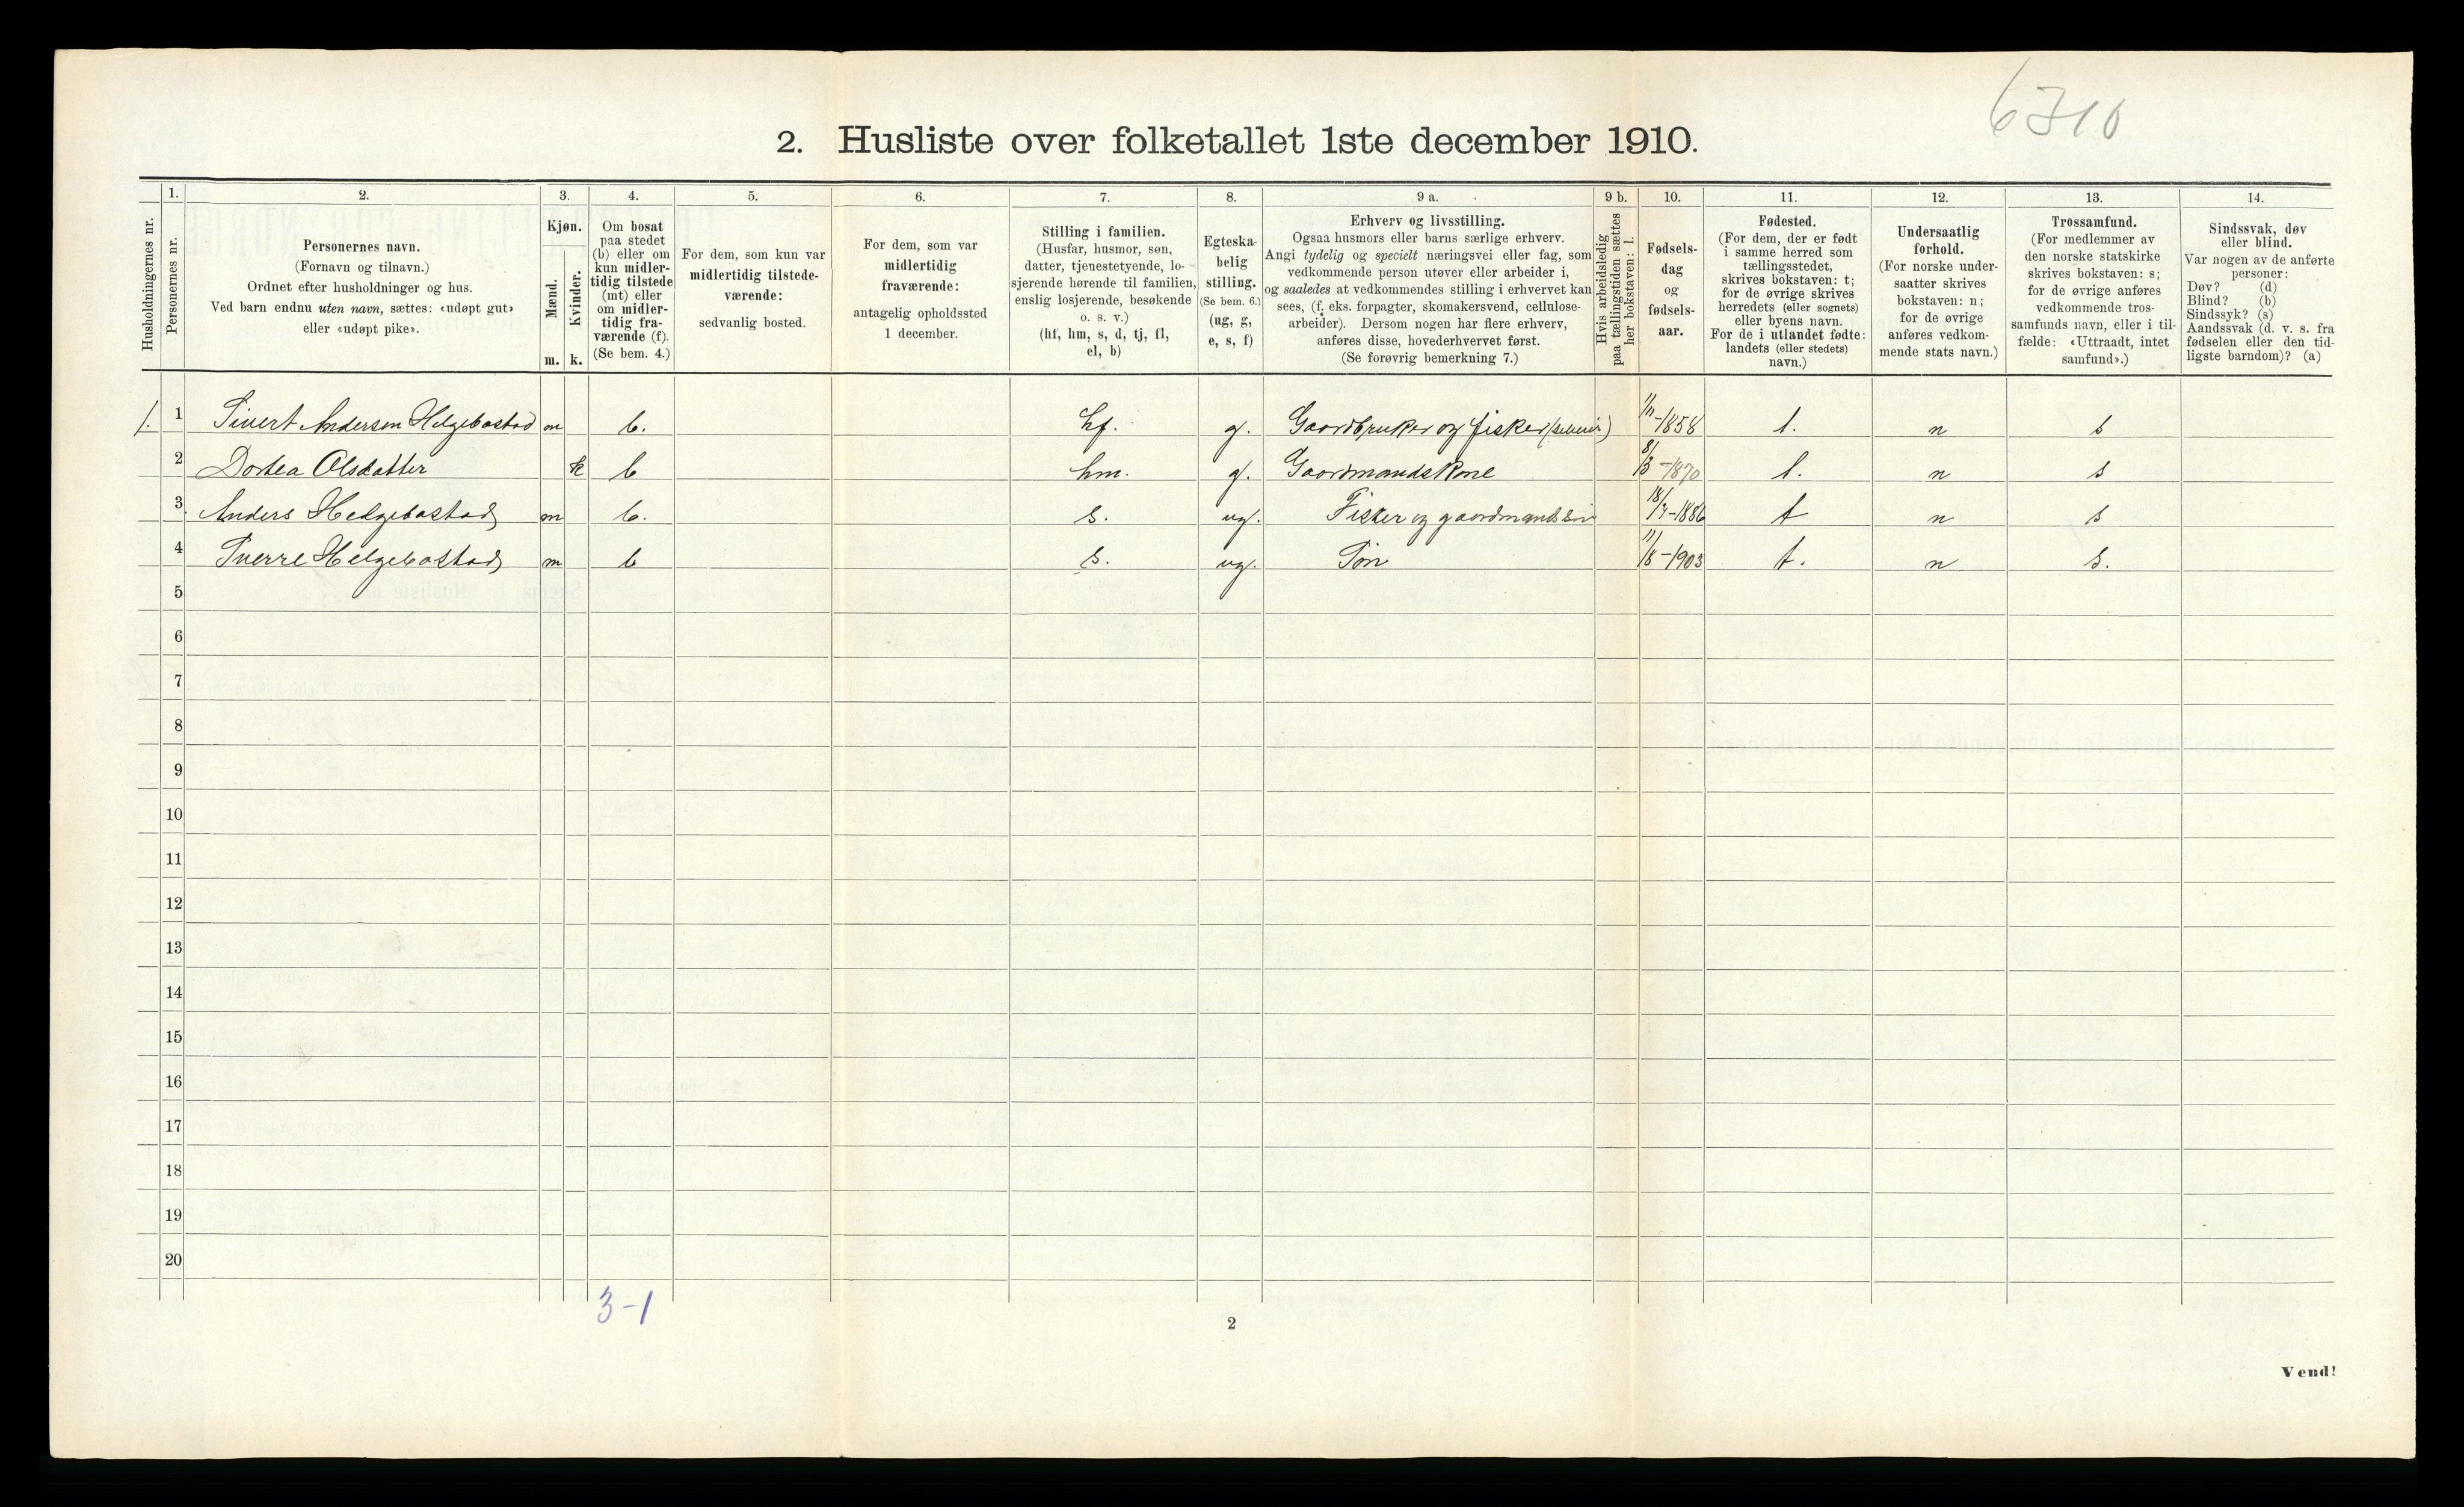 6310
2. Husliste over folketallet 1ste december 1910.
Husholdningernes nr.
1.
Personernes nr.
2.
Personernes navn.
(Fornavn og tilnavn.)
Ordnet efter husholdninger og hus.
Ved barn endnu uten navn, sættes: «udøpt gut»
eller «udøpt pike».
3.
Kjøn.
Mænd.
m.
Kvinder.
k.
4.
Om bosat
paa stedet
(b) eller om
kun midler-
tidig tilstede
(mt) eller
om midler-
tidig fra-
værende (f).
(Se bem. 4.)
5.
For dem, som kun var
midlertidig tilstede-
værende:
sedvanlig bosted.
6.
For dem, som var
midlertidig
fraværende:
antagelig opholdssted
1 december.
7.
Stilling i familien.
(Husfar, husmor, søn,
datter, tjenestetyende, lo-
sjerende hørende til familien,
enslig losjerende, besøkende
o. s. v.)
(hf, hm, s, d, tj, fl,
el, b)
8.
Egteska-
belig
stilling.
(Se bem. 6.)
(ug, g,
e, s, f)
9 a.
Erhverv og livsstilling.
Ogsaa husmors eller barns særlige erhverv.
Angi tydelig og specielt næringsvei eller fag, som
vedkommende person utøver eller arbeider i,
og saaledes at vedkommendes stilling i erhvervet kan
sees, (f. eks. forpagter, skomakersvend, cellulose-
arbeider). Dersom nogen har flere erhverv,
anføres disse, hovederhvervet først.
(Se forøvrig bemerkning 7.)
9 b.
Hvis arbeidsledig
paa tællingstiden sættes
her bokstaven: l.
10.
Fødsels-
dag
og
fødsels-
aar.
11.
Fødested.
(For dem, der er født
i samme herred som
tællingsstedet,
skrives bokstaven: t;
for de øvrige skrives
herredets (eller sognets)
eller byens navn.
For de i utlandet fødte:
landets (eller stedets)
navn.)
12.
Undersaatlig
forhold.
(For norske under-
saatter skrives
bokstaven: n;
for de øvrige
anføres vedkom-
mende stats navn.)
13.
Trossamfund.
(For medlemmer av
den norske statskirke
skrives bokstaven: s;
for de øvrige anføres
vedkommende tros-
samfunds navn, eller i til-
fælde: «Uttraadt, intet
samfund».)
14.
Sindssvak, døv
eller blind.
Var nogen av de anførte
personer:
Døv? (d)
Blind? (b)
Sindssyk? (s)
Aandssvak (d. v. s. fra
fødselen eller den tid-
ligste barndom)? (a)
1. 1 Sivert Andersen Helgebostad m b. hf. g. Gaardbruker og fisker 1858 t. n s
2 Dortea Olsdatter k b hm. g. Gaardmandskone 8/3-1870 t. n s
3 Anders Helgebostad m b. s. ug. Fisker og gaardmandssøn 1886 t n s
4 Sverre Helgebostad m b s. ug. Søn 11/8-1903 t. n s.
5
6
7
8
9
10
11
12
13
14
15
16
17
18
19
20
3-1
2
Vend!